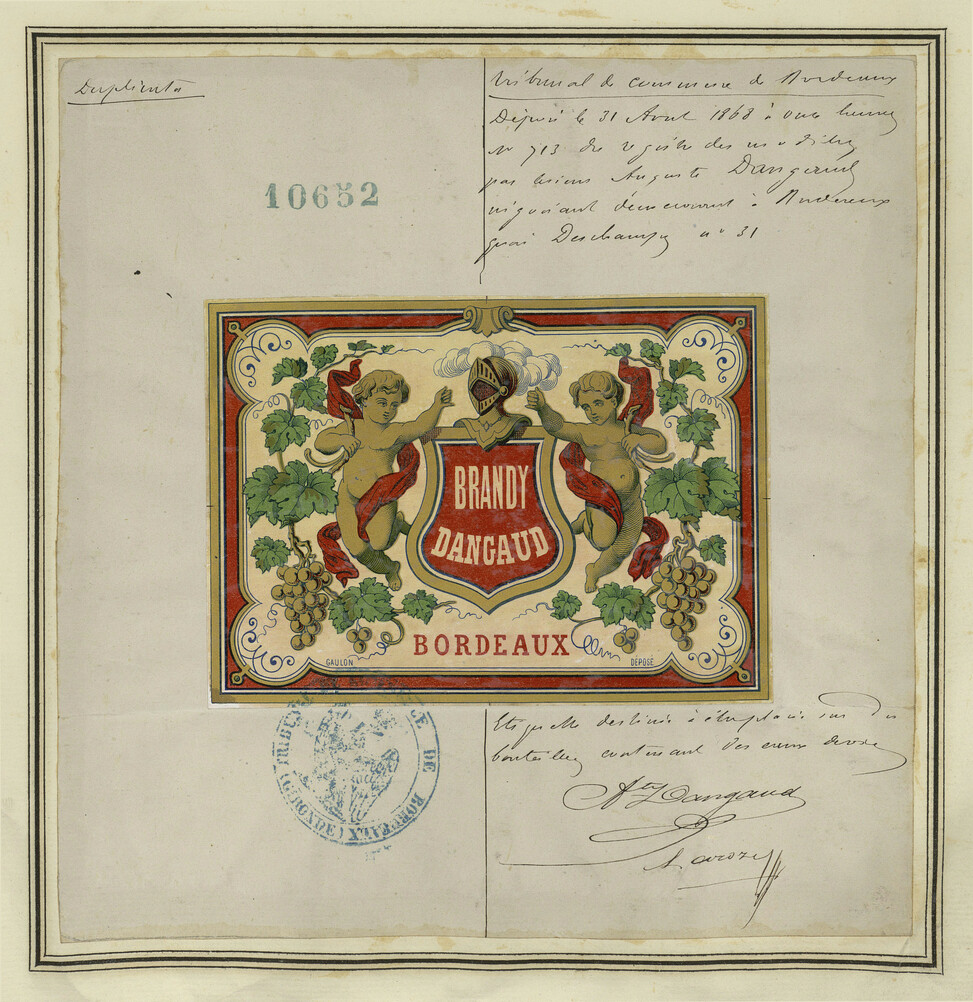 Duplicata
Tribunal de commerce de Bordeaux
Déposé le 31 Aout 1868 à onze heures
N° 713 du registre des modèles
par le sieur Auguste Dangaud
négociant demeurant à Bordeaux
quai Deschamps n° 31
10652
BRANDY
DANGAUD
BORDEAUX
GAULON
DÉPOSÉ
TRIBUNAL DE COMMERCE DE BORDEAUX
(GIRONDE)
Etiquette destinée à être placée sur des
bouteilles contenant des eaux de vie
Dangaud